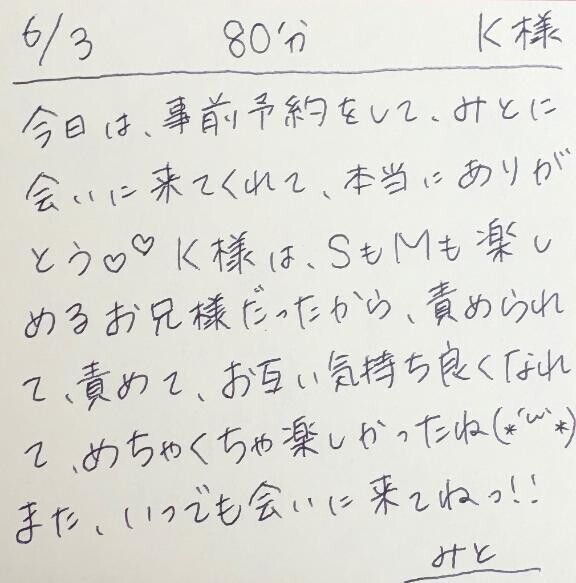 6/3 80分 K様
今日は、事前予約をして、みとに
会いに来てくれて、本当にありが
とう♡♡ K様は、SもMも楽し
めるお兄様だったから、責められ
て、責めて、お互い気持ち良くなれ
て、めちゃくちゃ楽しかったね(*´ω`*)
また、いつでも会いに来てねっ!!
みと